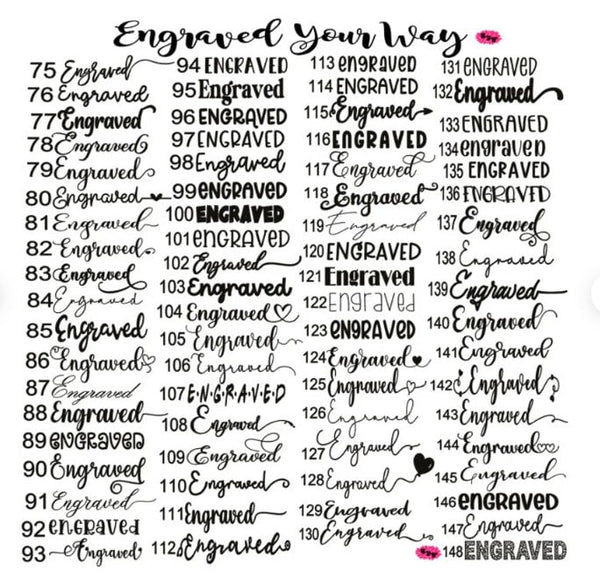 Engraved Your Way
75 Engraved
76 Engraved
77 Engraved
78 Engraved
79 Engraved
80 Engraved
81 Engraved
82 Engraved
83 Engraved
84 Engraved
85 Engraved
86 Engraved
87 Engraved
88 Engraved
89 ENGRAVED
90 Engraved
91 Engraved
92 ENGRAVED
93 Engraved
94 ENGRAVED
95 Engraved
96 ENGRAVED
97 ENGRAVED
98 Engraved
99 ENGRAVED
100 ENGRAVED
101 ENGRAVED
102 Engraved
103 Engraved
104 Engraved
105 Engraved
106 Engraved
107 E·N·G·R·A·V·E·D
108 Engraved
109 Engraved
110 Engraved
111 Engraved
112 Engraved
113 ENGRAVED
114 ENGRAVED
115 Engraved
116 ENGRAVED
117 Engraved
118 Engraved
119 Engraved
120 ENGRAVED
121 Engraved
122 Engraved
123 ENGRAVED
124 Engraved
125 Engraved
126 Engraved
127 Engraved
128 Engraved
129 Engraved
130 Engraved
131 ENGRAVED
132 Engraved
133 ENGRAVED
134 engraved
135 ENGRAVED
136 ENGRAVED
137 Engraved
138 Engraved
139 Engraved
140 Engraved
141 Engraved
142 Engraved
143 Engraved
144 Engraved
145 Engraved
146 ENGRAVED
147 Engraved
148 ENGRAVED